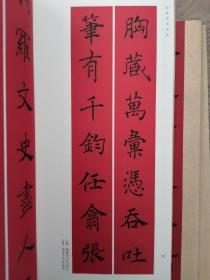 胸藏萬彙憑吞吐
筆有千鈞任翕張
羅文史盡人